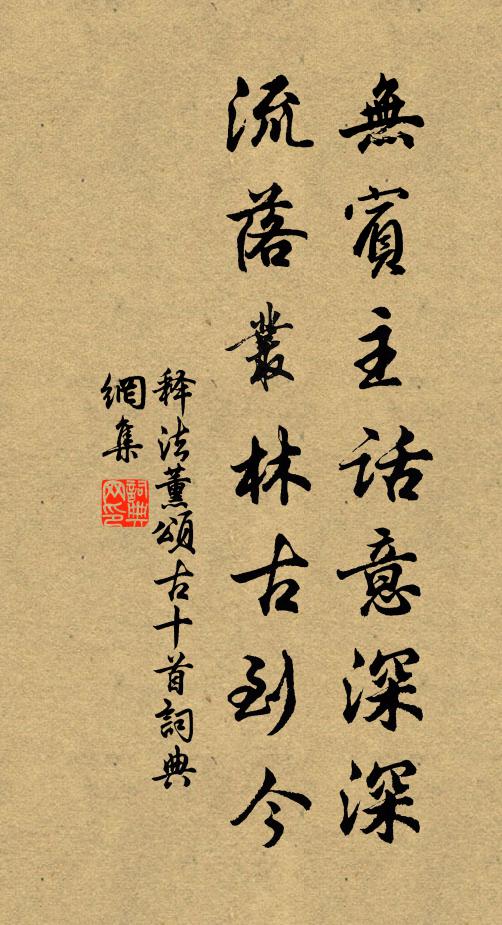 無賓主話意深深
流落叢林古到今
释法薰頌古十首詞典
網集
詞典
网印